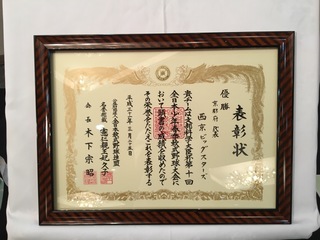 表彰状
優勝
京都府代表
西京ビッグスターズ
貴チームは文部科学大臣杯第十回
全日本少年春季軟式野球大会に
おいて頭書の成績を収めたので
その栄誉をたたえこれを表彰する
平成三十一年三月二十五日
公益財団法人全日本軟式野球連盟
名誉総裁 憲仁親王妃久子
会長 木下宗昭